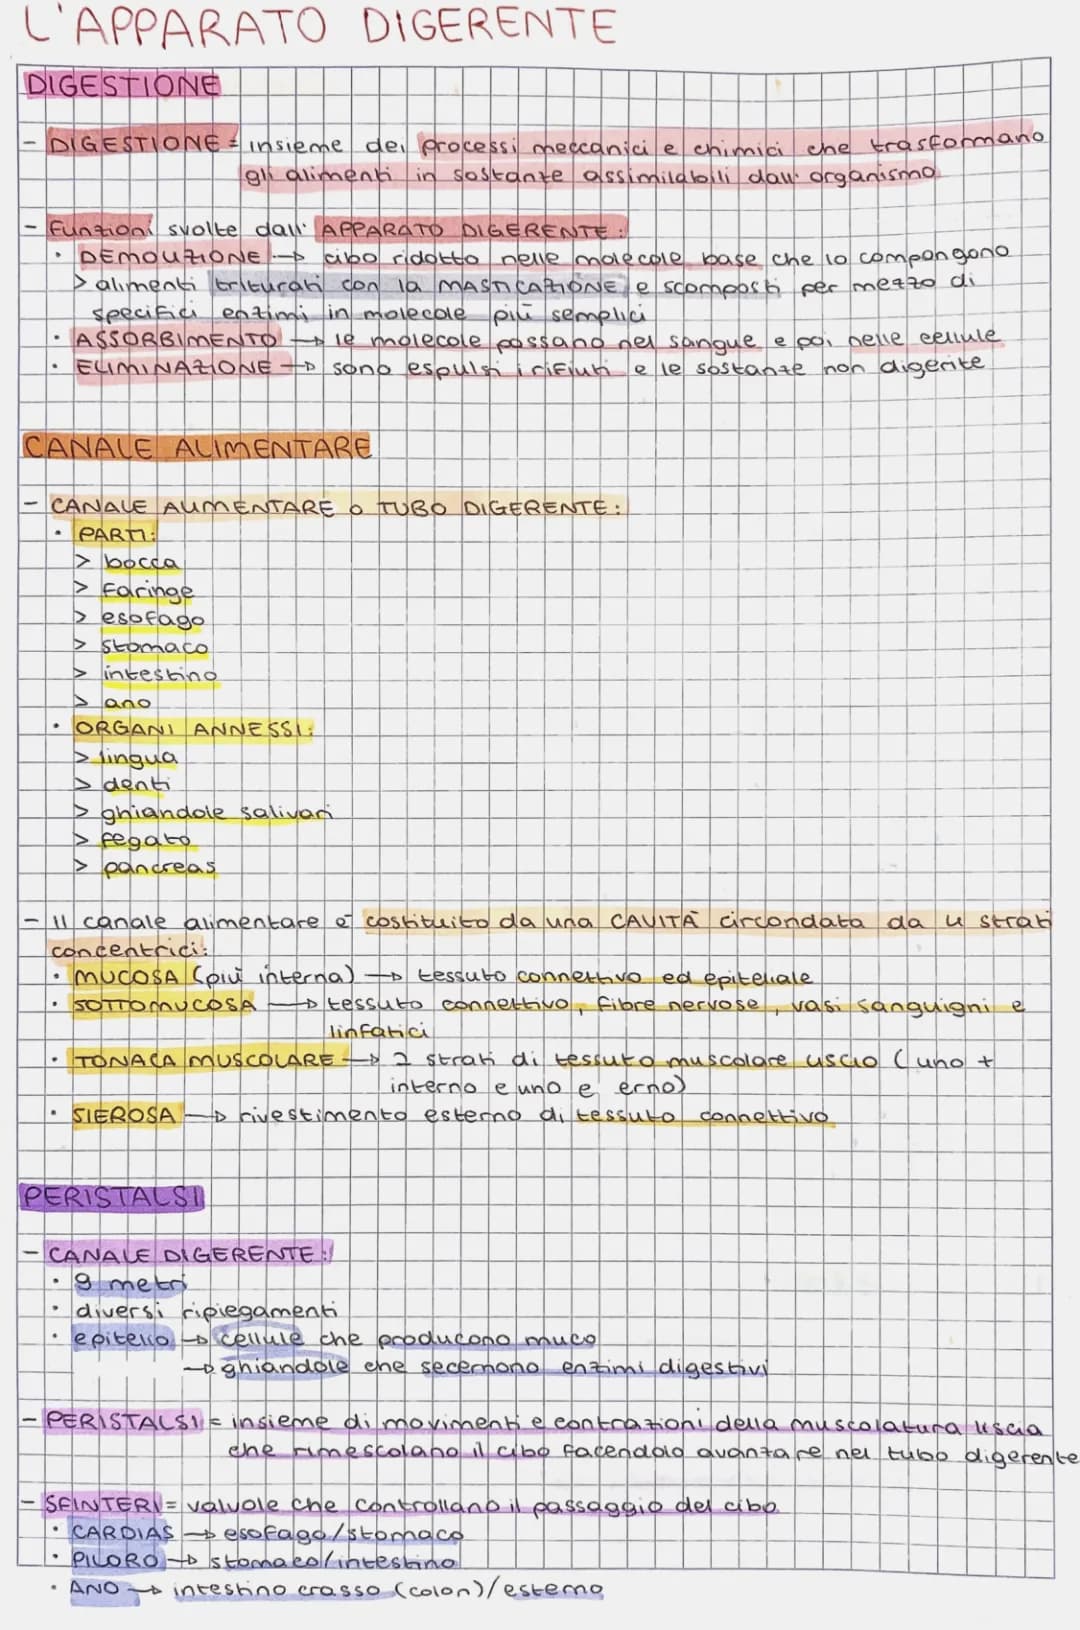 L'APPARATO DIGERENTE
DIGESTIONE
- DIGESTIONE = insieme dei processi meccanici e chimici che trasformano
gli alimenti in sostanze assimilabili dall'organismo
- Funzioni svolte dall'APPARATO DIGERENTE:
• DEMOLIZIONE → cibo ridotto nelle molecole base che lo compongono
> alimenti triturati con la MASTICAZIONE e scomposti per mezzo di
specifici enzimi in molecole più semplici
• ASSORBIMENTO → le molecole passano nel sangue e poi nelle cellule
• ELIMINAZIONE → sono espulsi i rifiuti e le sostanze non digerite
CANALE ALIMENTARE
- CANALE ALIMENTARE o TUBO DIGERENTE:
• PARTI:
> bocca
> faringe
> esofago
> stomaco
> intestino
> ano
• ORGANI ANNESSI:
> lingua
> denti
> ghiandole salivari
> fegato
> pancreas
- Il canale alimentare è costituito da una CAVITÀ circondata da 4 strati
concentrici:
• MUCOSA (più interna) → tessuto connettivo ed epiteliale
• SOTTOMUCOSA → tessuto connettivo, fibre nervose, vasi sanguigni e
linfatici
• TONACA MUSCOLARE → 2 strati di tessuto muscolare liscio (uno +
interno e uno e erno)
• SIEROSA → rivestimento esterno di tessuto connettivo
PERISTALSI
- CANALE DIGERENTE:
• 9 metri
• diversi ripiegamenti
• epitelio → cellule che producono muco
→ ghiandole che secernono enzimi digestivi
- PERISTALSI = insieme di movimenti e contrazioni della muscolatura liscia
che rimescolano il cibo facendolo avanzare nel tubo digerente
- SFINTERI = valvole che controllano il passaggio del cibo
• CARDIAS → esofago/stomaco
• PILORO → stomaco/intestino
• ANO → intestino crasso (colon)/esterno